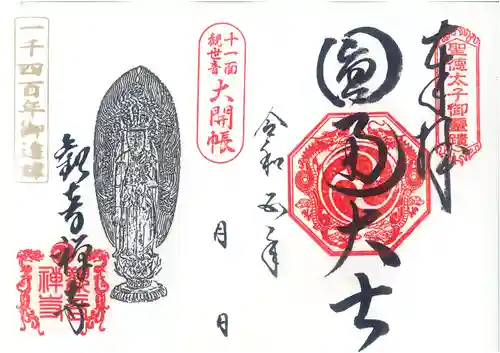 奉拝
聖徳太子御霊蹟
圓通大士
令和五年
月 日
十一面
観世音
大開帳
観音禅寺
一千四百年御遠諱